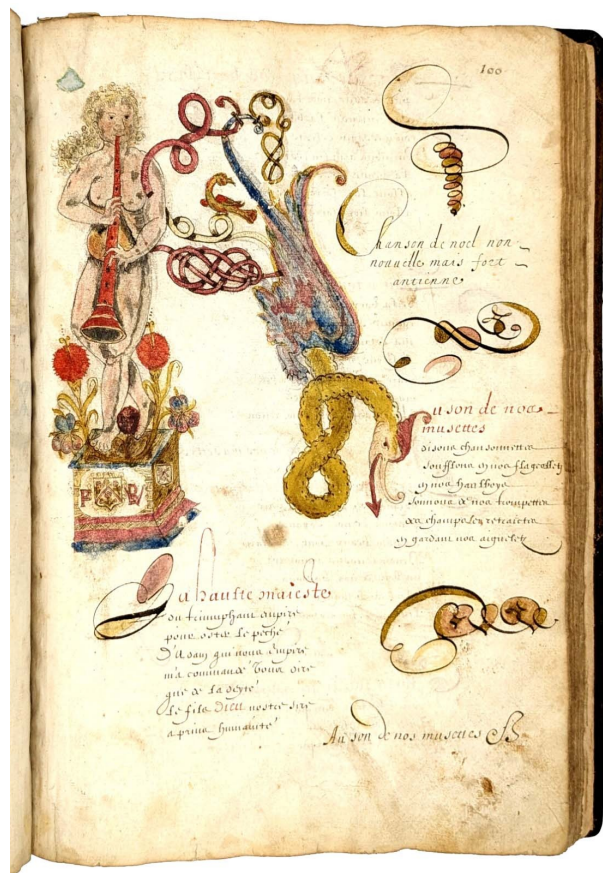 100
Chanson de noel non
nouvelle mais fort
antienne
Au son de nos
musettes
disons chansonnettes
soufflons en nos flageolletz
en nos haulboys
sonnons de nos trompettes
en gardant nos aigneletz
La haulte maieste
du triumphant empire
pour oster le peché
D'Adam qui nous empire
m'a commandé vous dire
que de la deyté
le filz Dieu nostre sire
a prins humanité
Au son de nos musettes
F R